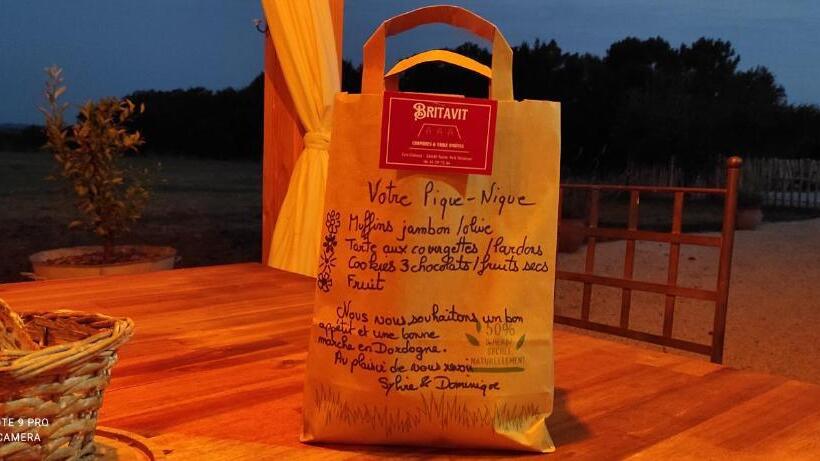 BRITAVIT
CHAMBRES & TABLE D'HÔTES
Votre Pique-Nique
Muffins jambon/olive
Tarte aux courgettes/lardons
Cookies 3 chocolats/fruits secs
Fruit
Nous vous souhaitons un bon
appétit et une bonne
marche en Dordogne.
Au plaisir de vous revoir
Sylvie & Dominique
50%
D'HERBE
SÉCHÉE
NATURELLEMENT
TE 9 PRO
CAMERA